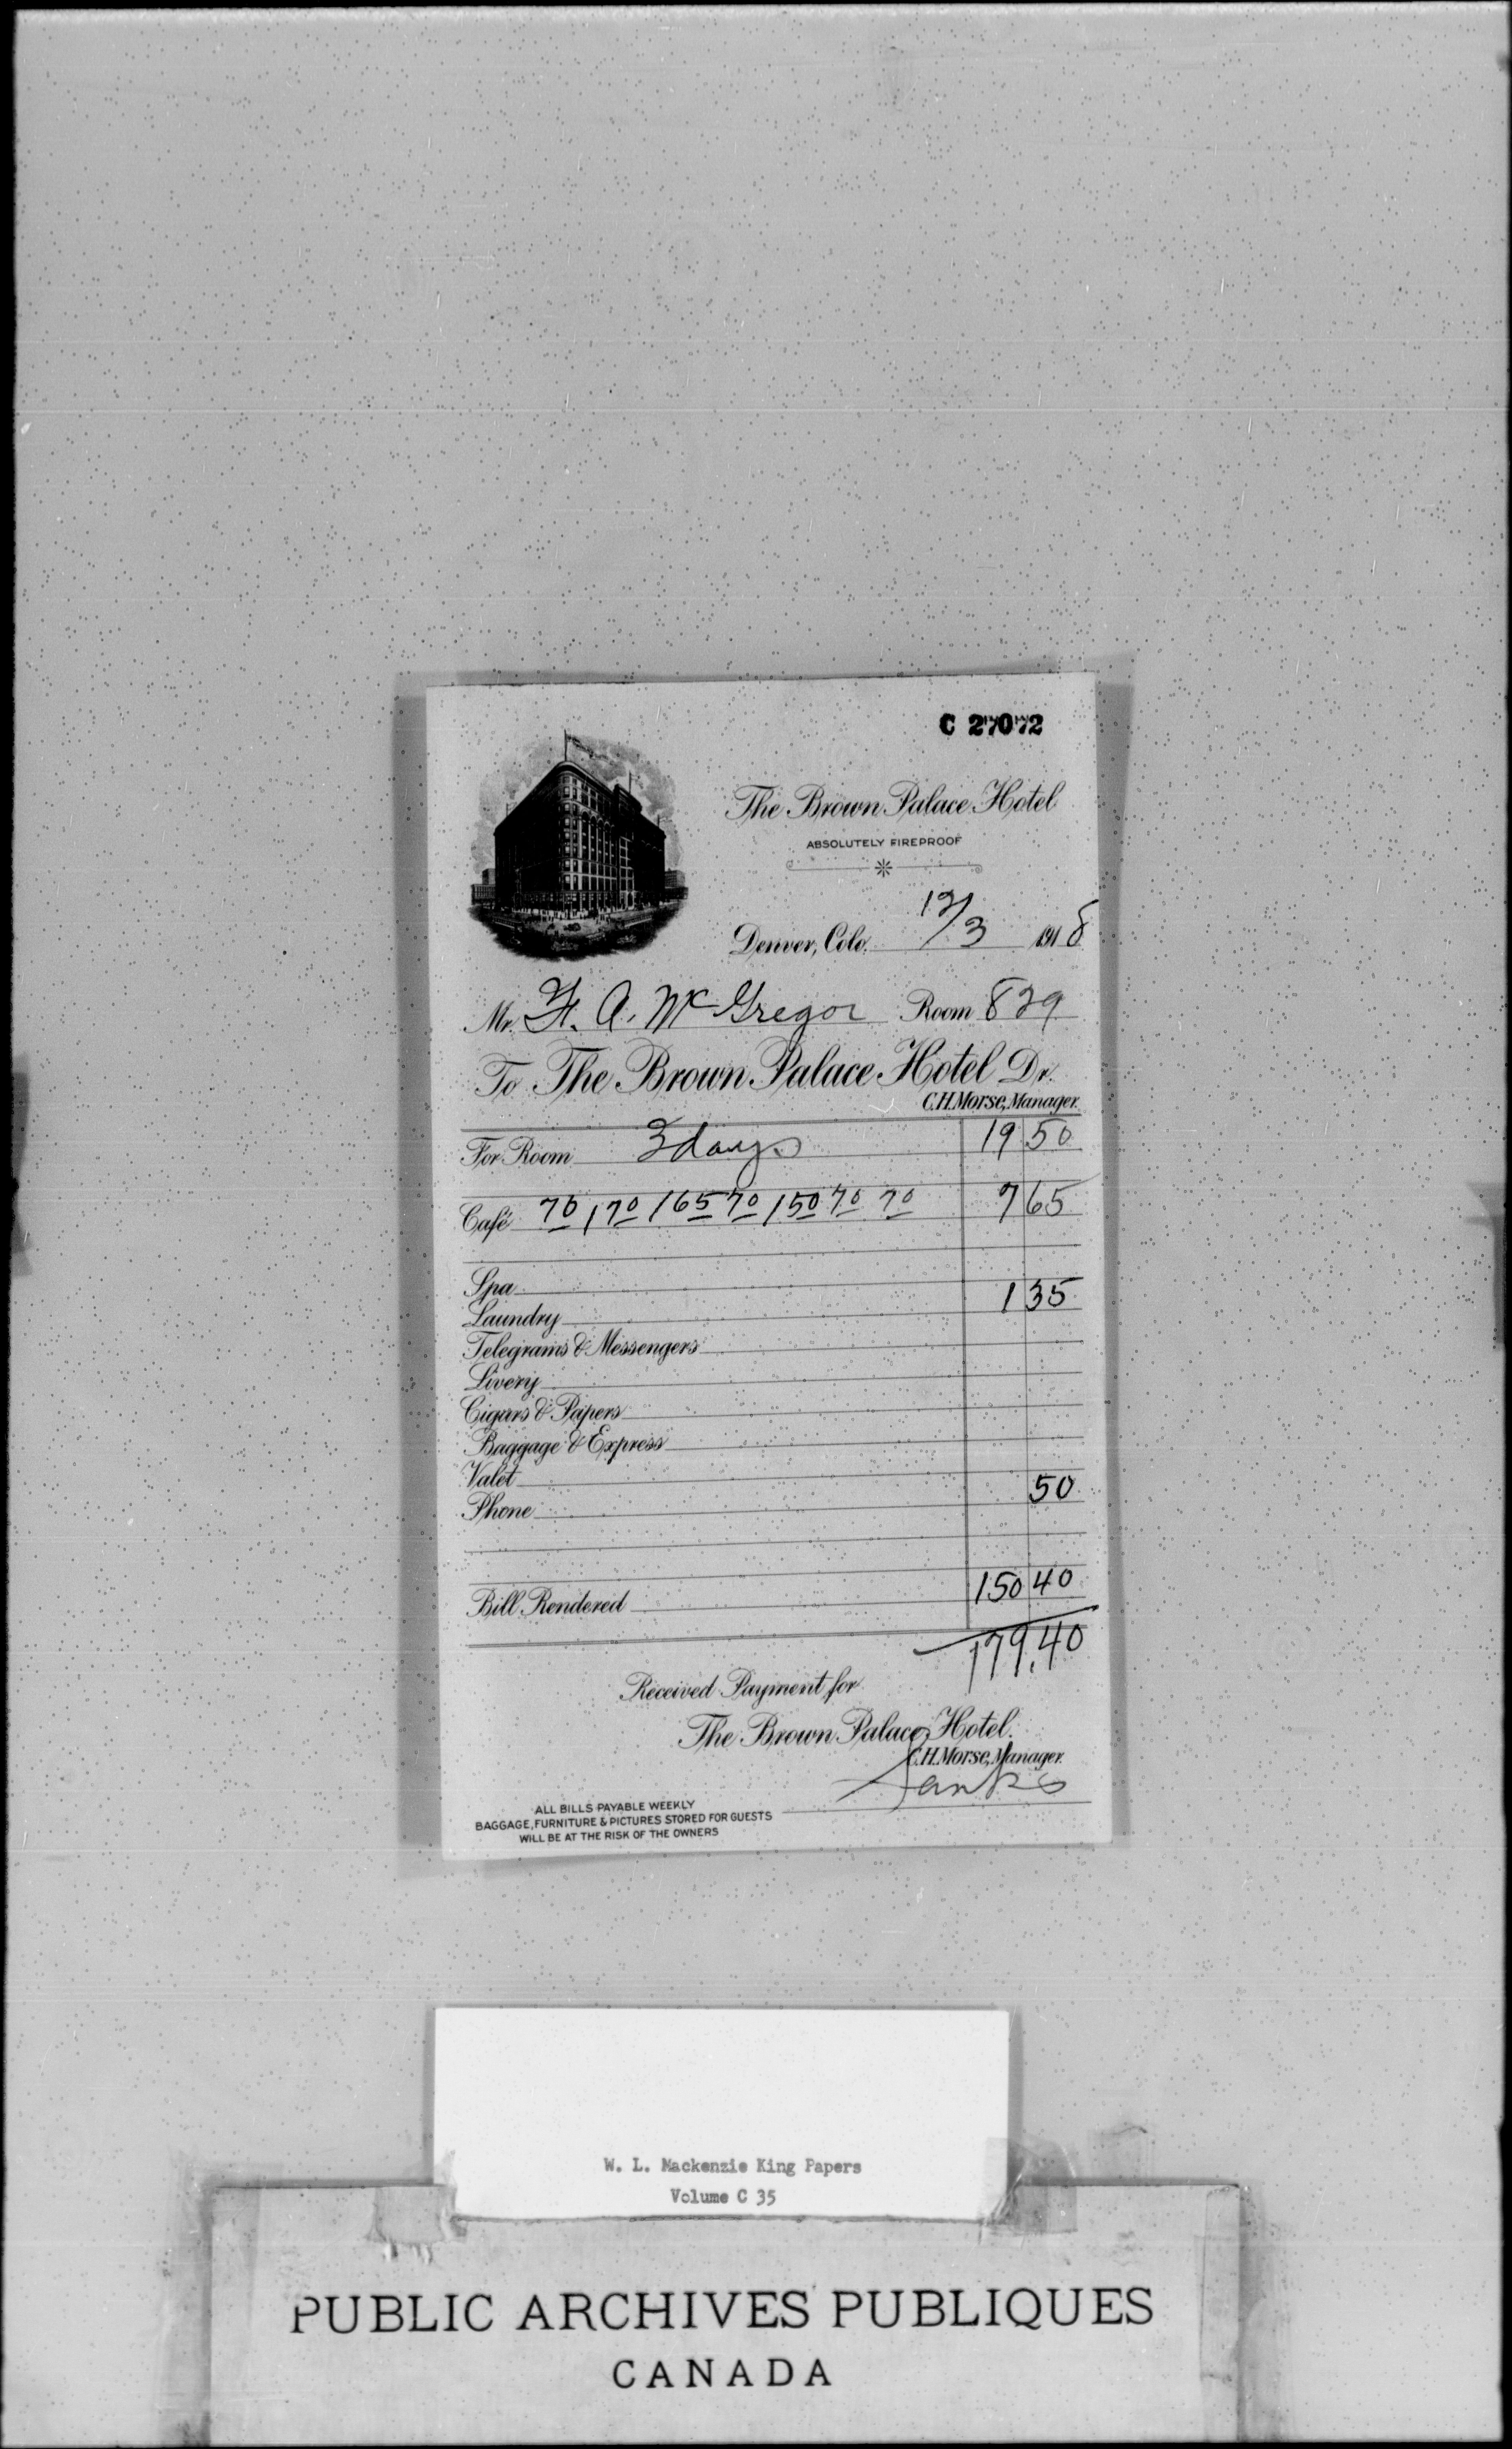 C 27072
The Brown Palace Hotel
ABSOLUTELY FIREPROOF
Denver, Colo. 12/3 1918
Mr. F. A. McGregor Room 829
To The Brown Palace Hotel Dr.
C.H. Morse, Manager.
For Room 3 days 19 50
Café 70 1 70 1 65 70 1 50 70 70 7 65
Spa
Laundry 1 35
Telegrams & Messengers
Livery
Cigars & Papers
Baggage & Express
Valet
Phone 50
Bill Rendered 150 40
179.40
Received Payment for
The Brown Palace Hotel.
C.H. Morse, Manager.
ALL BILLS PAYABLE WEEKLY
BAGGAGE, FURNITURE & PICTURES STORED FOR GUESTS
WILL BE AT THE RISK OF THE OWNERS
W. L. Mackenzie King Papers
Volume C 35
PUBLIC ARCHIVES PUBLIQUES
CANADA